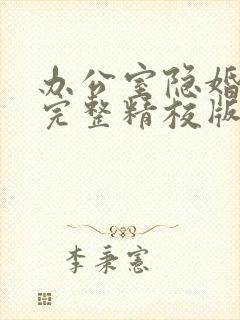 办公室隐婚
完整精校版
李秉宪